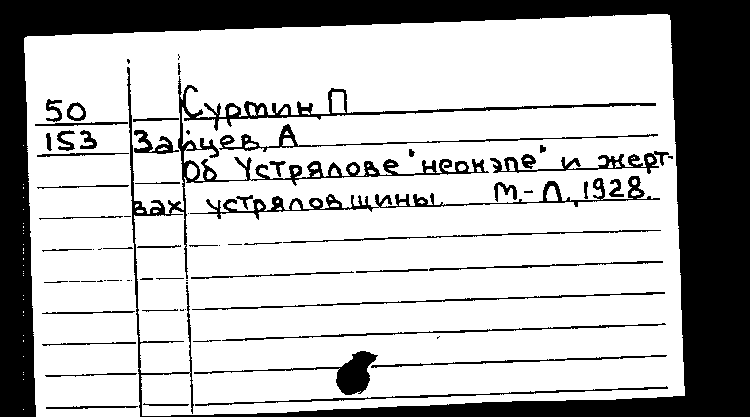 50 Суртин, П
153 Зайцев, А
Об Устрялове "неонэпе" и жерт-
вах устряловщины М.-Л., 1928.